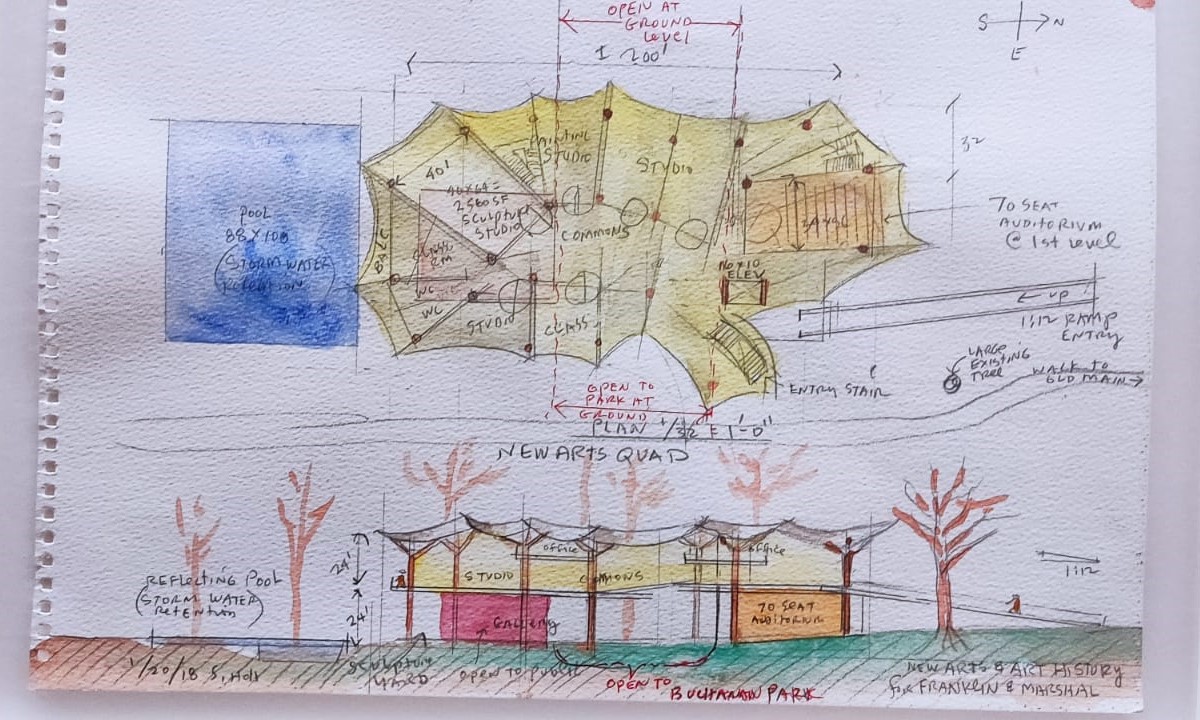 OPEN AT
GROUND
level
± 200'
S N
E
32
PAINTING
STUDIO
STUDIO
40'
40x64=
2560 SF
Sculpture
STUDIO
COMMONS
POOL
88 X 100
(STORM WATER
RETENTION)
BALC
CLASS
RM
WC
WC
STUDIO
CLASS
16 x 10
ELEV
70 SEAT
AUDITORIUM
@ 1st Level
← UP
1:12 RAMP
ENTRY
LARGE
EXISTING
TREE
WALK TO
OLD MAIN →
ENTRY STAIR
OPEN TO
PARK AT
GROUND
PLAN 1/32" = 1'-0"
NEW ARTS QUAD
24'
24'
OFFICE
OFFICE
STUDIO
COMMONS
1:12
REFLECTING POOL
(STORM WATER
RETENTION)
GALLERY
70 SEAT
AUDITORIUM
1/20/18 S. Holl
SCULPTURE
YARD
OPEN TO PUBLIC
OPEN TO BUCHANAN PARK
NEW ARTS & ART HISTORY
for FRANKLIN & MARSHAL